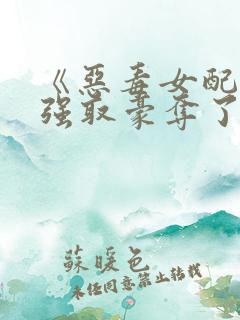 《惡毒女配
强取豪奪了
蘇暖色
未经同意禁止转载